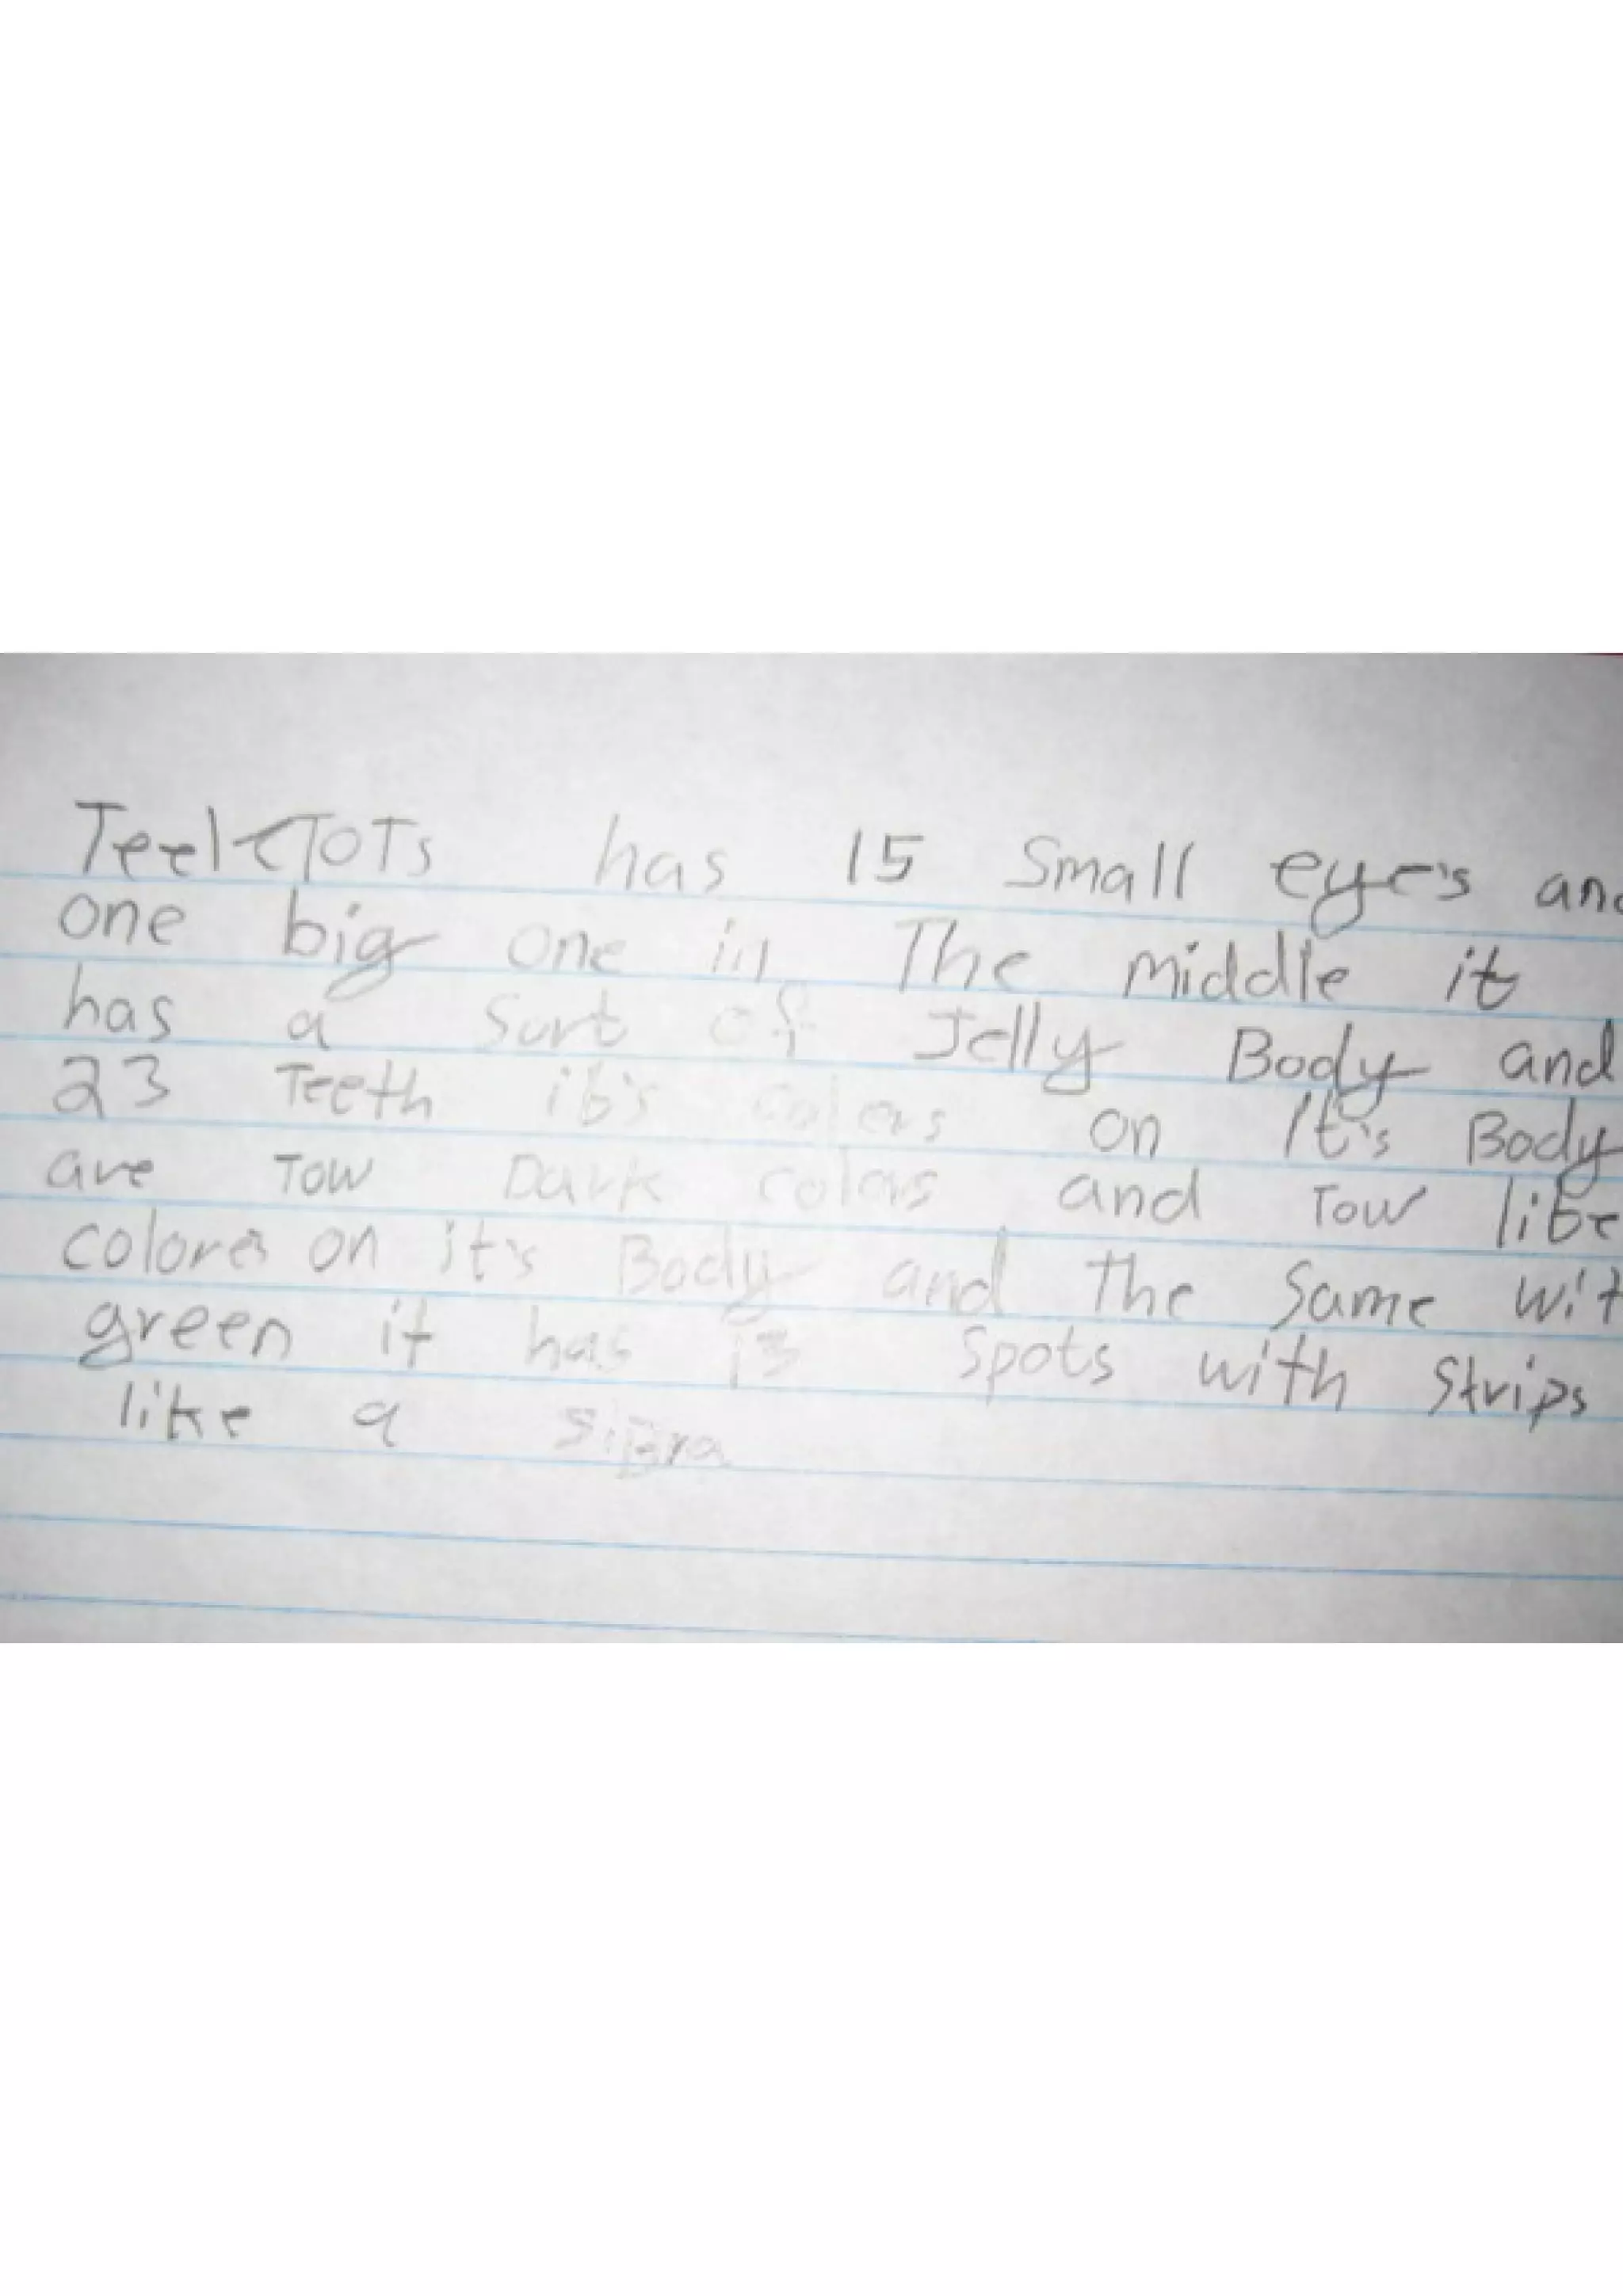 has 15 Small eye's and
one big one in The middle it
has a Sort of Jelly Body and
23 Teeth it's colers on It's Body
are Tow Dark colors and Tow lite
colores on it's Body and The Same wit
green it has 13 Spots with Strips
like a siBra